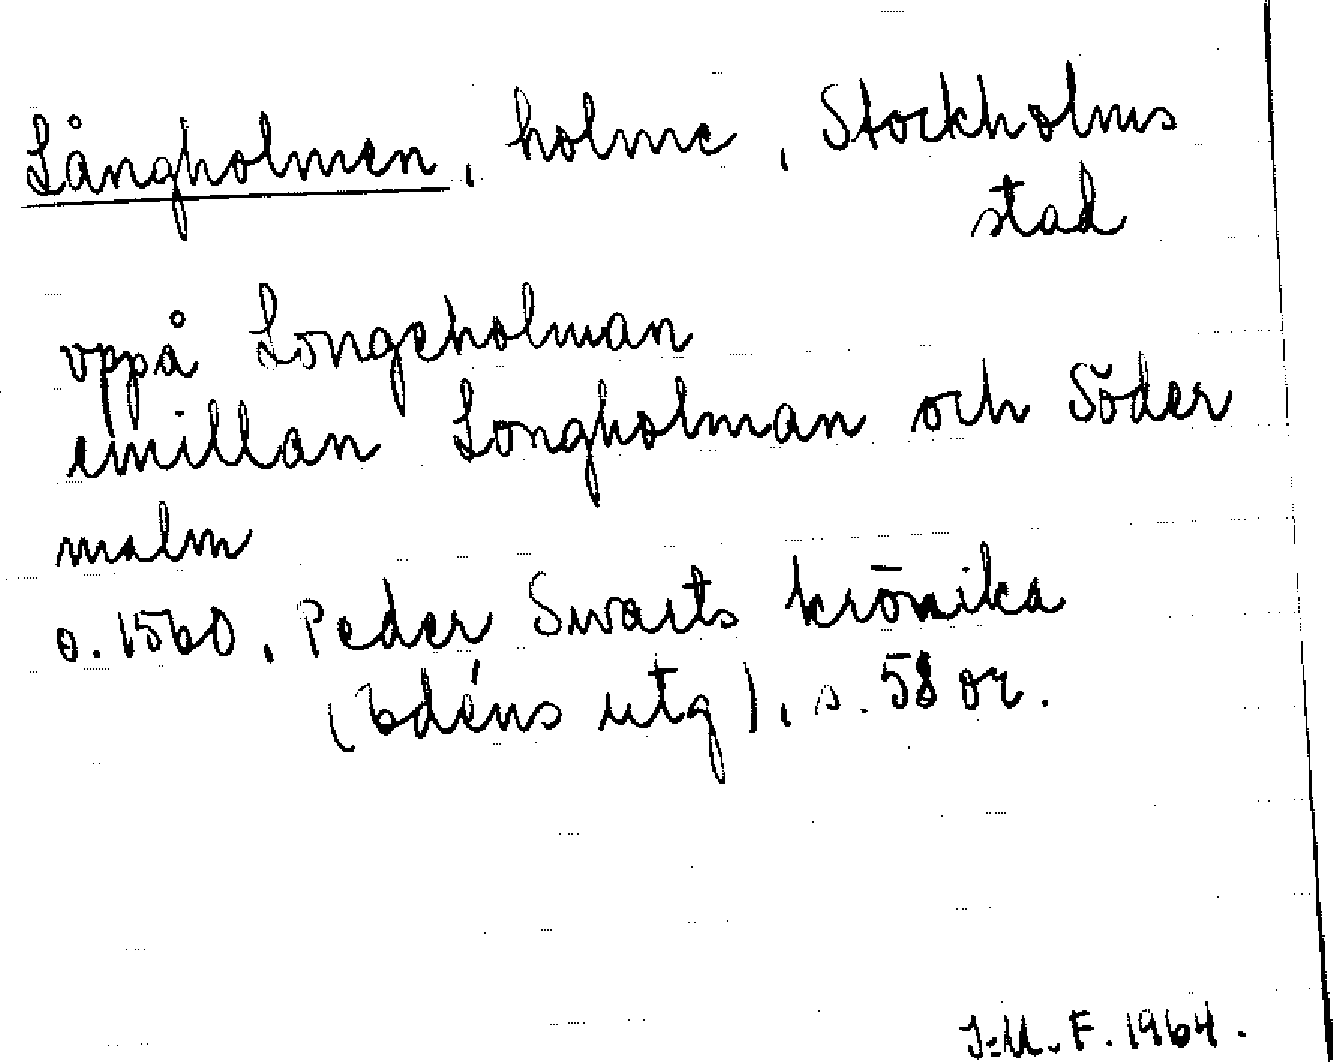 Långholmen, holme, Stockholms
stad
vppå Longeholman
emillan Longholman och Söder
malm
o. 1560, Peder Swarts krönika
(Edéns utg), s. 58 or.
J-M. F. 1964.